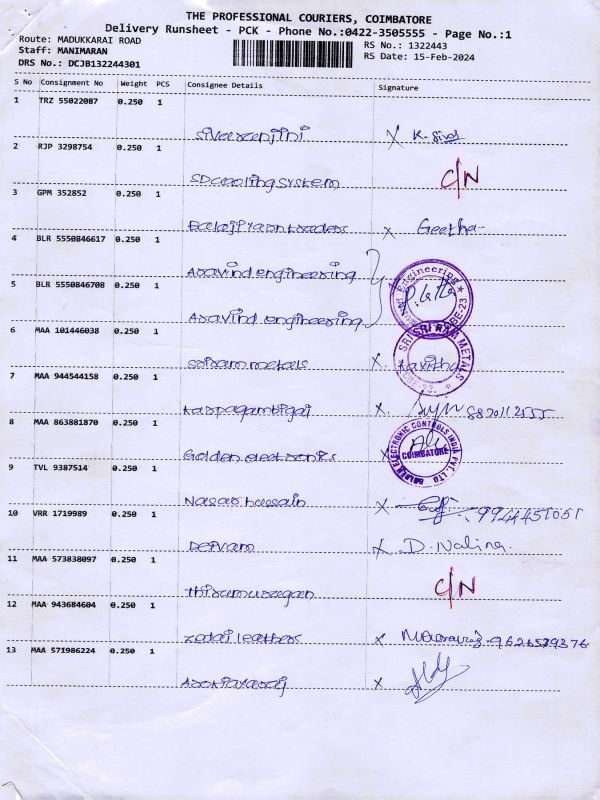 THE PROFESSIONAL COURIERS, COIMBATORE
Delivery Runsheet - PCK - Phone No.:0422-3505555 - Page No.:1
Route: MADUKKARAI ROAD
RS No.: 1322443
Staff: MANIMARAN
RS Date: 15-Feb-2024
DRS No.: DCJB132244301
S No Consignment No Weight PCS Consignee Details Signature
1 TRZ 55022087 0.250 1
Sivaranjini X K.
2 RJP 3298754 0.250 1
SD cooling system C/N
3 GPM 352852 0.250 1
Balaji traders X Geetha
4 BLR 5550846617 0.250 1
Aravind engineering
5 BLR 5550846708 0.250 1
Aravind engineering
Engineering
6 MAA 101446038 0.250 1
SRI SRI RAM METALS
sriram metals X. Kavitha
7 MAA 944544158 0.250 1
Karpagambigai X.
8 MAA 863881870 0.250 1
Golden electronics
GOLDEN ELECTRONIC CONTROLS INDIA PVT. LTD
COIMBATORE
9 TVL 9387514 0.250 1
Nasar hussain X 9944451051
10 VRR 1719989 0.250 1
Deivam X D. Nalina.
11 MAA 573838097 0.250 1
Thirumurugan C/N
12 MAA 943684604 0.250 1
leather X
13 MAA 571986224 0.250 1
Arokiyaraj X